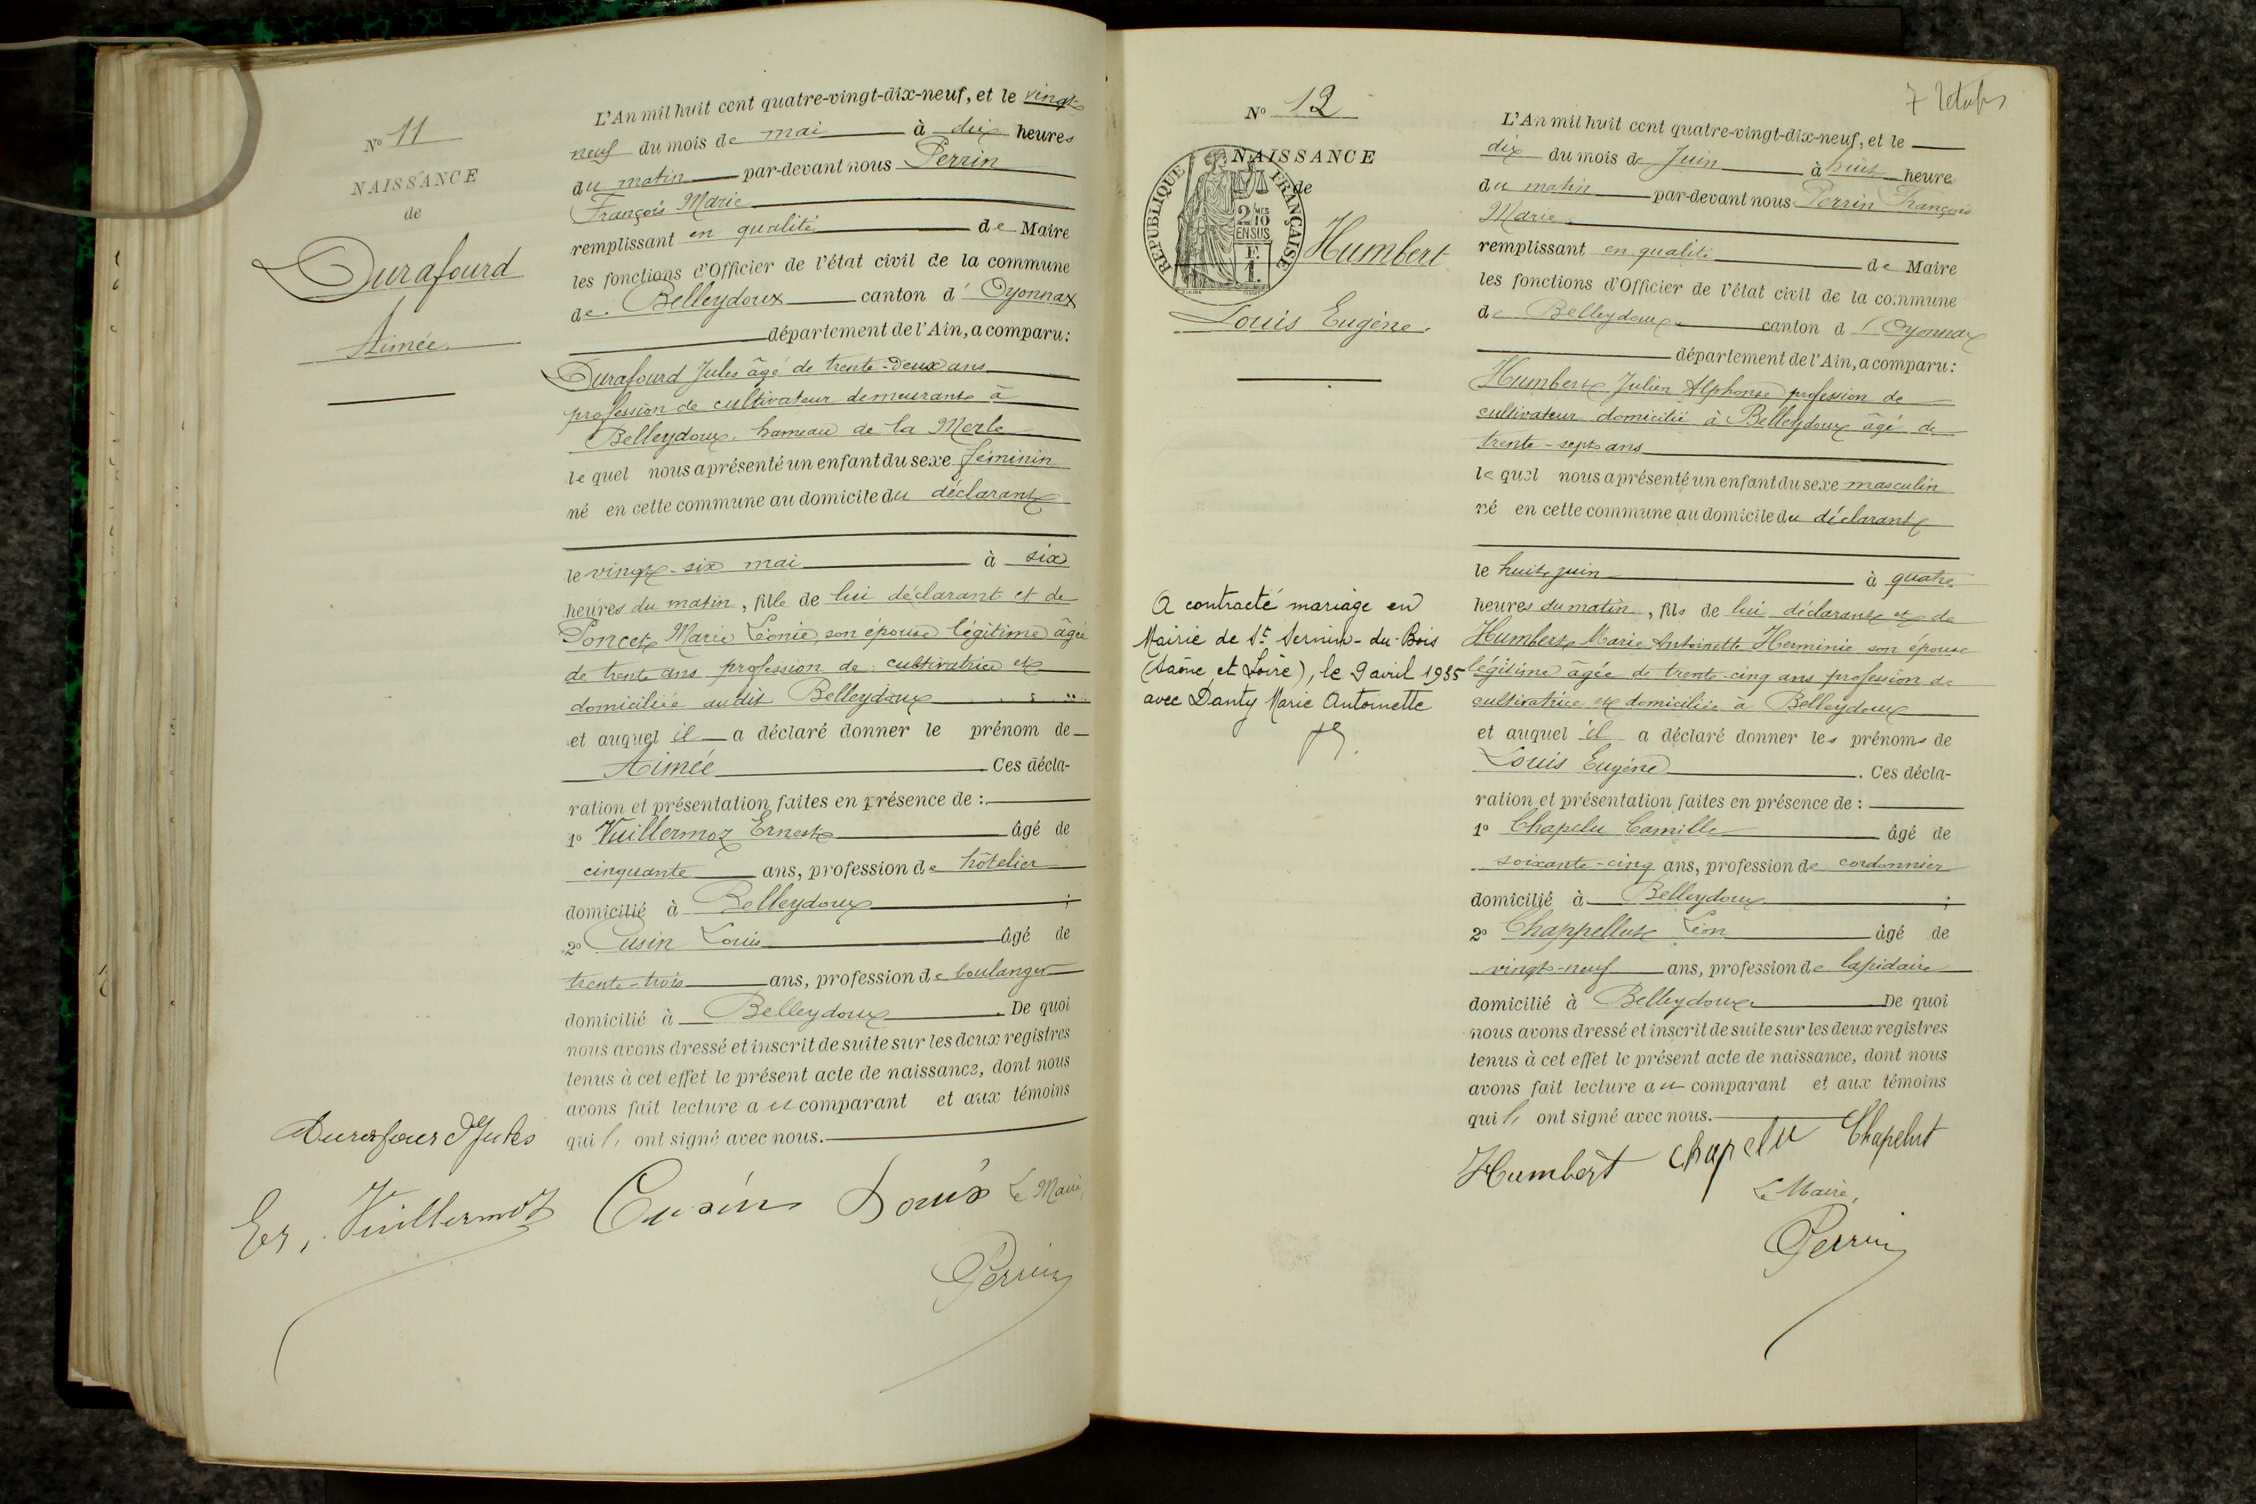 N° 11
NAISSANCE
de
Durafourd
Aimée.
L'An mil huit cent quatre-vingt-dix-neuf, et le vingt-
neuf du mois de mai à dix heures
du matin par-devant nous Perrin
François Marie
remplissant en qualité de Maire
les fonctions d'Officier de l'état civil de la commune
de Belleydoux canton d' Oyonnax
département de l'Ain, a comparu:
Durafourd Jules âgé de trente-deux ans
profession de cultivateur demeurant à
Belleydoux, hameau de la Merle
le quel nous a présenté un enfant du sexe féminin
né en cette commune au domicile du déclarant
le vingt-six mai à six
heures du matin, fille de lui déclarant et de
Poncet Marie Léonie son épouse légitime âgée
de trente ans profession de cultivatrice et
domiciliée audit Belleydoux
et auquel il a déclaré donner le prénom de
Aimée. Ces décla-
ration et présentation faites en présence de :
1° Vuillermoz Ernest âgé de
cinquante ans, profession de hôtelier
domicilié à Belleydoux ;
2° Cusin Louis âgé de
trente-trois ans, profession de boulanger
domicilié à Belleydoux. De quoi
nous avons dressé et inscrit de suite sur les deux registres
tenus à cet effet le présent acte de naissance, dont nous
avons fait lecture au comparant et aux témoins
qui ont signé avec nous.
Er. Vuillermoz Cusin Louis Le Maire,
Perrin
N° 12
NAISSANCE
de
RÉPUBLIQUE FRANÇAISE
2/10 MES
EN SUS
F.
1.
Humbert
Louis Eugène.
A contracté mariage en
Mairie de St Sernin-du-Bois
(Saône et Loire), le 9 avril 1935
avec Danty Marie Antoinette
7
L'An mil huit cent quatre-vingt-dix-neuf, et le
dix du mois de Juin à huit heure
du matin par-devant nous Perrin François
Marie
remplissant en qualité de Maire
les fonctions d'Officier de l'état civil de la commune
de Belleydoux canton d' Oyonnax
département de l'Ain, a comparu:
Humbert Julien Alphonse profession de
cultivateur domicilié à Belleydoux âgé de
trente-sept ans
le quel nous a présenté un enfant du sexe masculin
né en cette commune au domicile du déclarant
le huit juin à quatre
heures du matin, fils de lui déclarant et de
Humbert Marie Antoinette Herminie son épouse
légitime âgée de trente-cinq ans profession de
cultivatrice et domiciliée à Belleydoux
et auquel il a déclaré donner les prénoms de
Louis Eugène. Ces décla-
ration et présentation faites en présence de :
1° Chapelu Camille âgé de
soixante-cinq ans, profession de cordonnier
domicilié à Belleydoux ;
2° Chappellut Léon âgé de
vingt-neuf ans, profession de lapidaire
domicilié à Belleydoux. De quoi
nous avons dressé et inscrit de suite sur les deux registres
tenus à cet effet le présent acte de naissance, dont nous
avons fait lecture au comparant et aux témoins
qui ont signé avec nous.
Humbert chapelu Chapelut
Le Maire,
Perrin